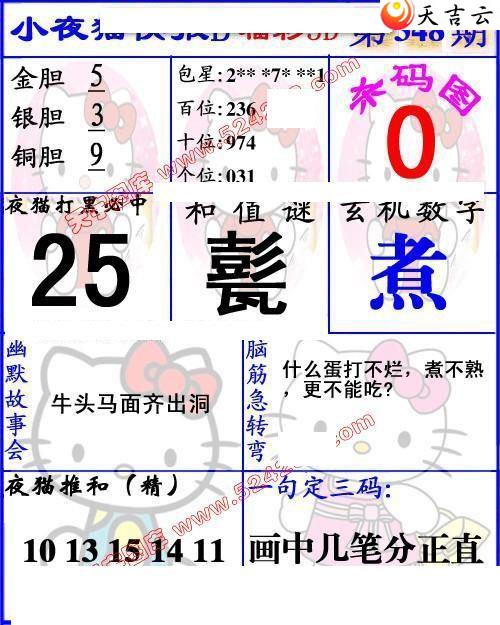 天吉云
小夜猫 D 福彩3D 第 348 期
金胆 5
银胆 3
铜胆 9
包星:2** *7* **1
百位:236
十位:974
个位:031
杀码图
0
夜猫打黑必中
25
和值谜
髦
玄机数字
煮
幽默故事会
牛头马面齐出洞
脑筋急转弯
什么蛋打不烂，煮不熟
，更不能吃?
夜猫推和（精）
10 13 15 14 11
一句定三码:
画中几笔分正直